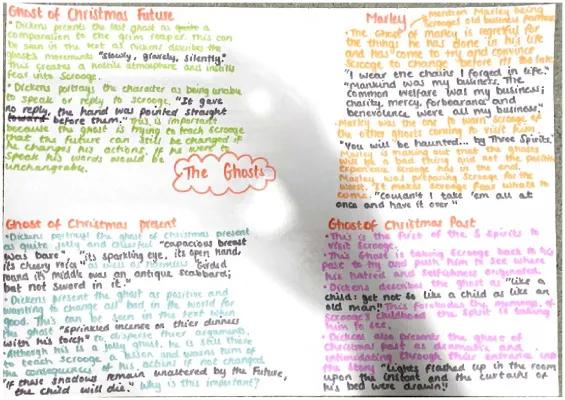 Ghost of Christmas Future
• Dickens presents the last ghost as quite a
comparasion to the grim reaper. This can
be seen in the text as Dickens describes the
ghosts movements "slowly, gravely, silently."
This creates a hostile atmosphere and instills
fear into Scrooge.
• Dickens portrays the character as being unable
to speak or reply to scrooge. "It gave
no reply, the hand was pointed straight
toward before them." This is important
because the ghost is trying to teach scrooge
that the future can still be changed if
he changes his actions. If he were to
speak his words would be
unchangable.
Marley
mention Marley being
Scrooges old business partner
• The ghost of marley is regretful for
the things he has done in his life
and has come to try and convince
Scrooge to change before it's too late
"I wear the chains I forged in life."
"Mankind was my business. The
common welfare was my business;
charity, mercy, forbearance and
benevolence were all my business."
• Marley was the one to warn scrooge of
the other ghosts coming to visit him.
"You will be haunted... by Three Spirits."
Marley is making out that the ghosts
will be a bad thing and not the positive
experience scrooge has in the end.
Marley was preparing Scrooge for the
worst. It makes scrooge fear whats to
come. "Couldn't I take 'em all at
once and have it over"
The Ghosts
Ghost of Christmas present
• Dickens portrays the ghost of christmas present
as quite jolly and cheerful "capacious breast
was bare" "its sparkling eye, its open hand,
its cheery voice" as well as harmless "Girded
round its middle was an antique scabbard;
but not sword in it."
• Dickens present the ghost as positive and
wanting to change all bad in the world for
good. This can be seen in the text when
the ghost "sprinkled incense on their dinners
with his torch" to disperse their arguments.
• Although his is a kind ghost, he is still there
to teach scrooge a lesson and warns him of
the consequences of his actions if not changed
"If these shadows remain unaltered by the Future,
the child will die." Why is this important?
Ghost of Christmas Past
• This is the first of the 3 spirits to
visit Scrooge.
• This Ghost is taking Scrooge back to his
past to try and push him to see where
his hatred and selfishness originated.
• Dickens describes the ghost as "like a
child: yet not so like a child as like an
old man." This foreshadows the memories of
Scrooge's childhood the spirit is taking
him to see.
• Dickens also presents the ghost of
christmas past as dramatic and
intimidating through their entrance into
the story "Lights flashed up in the room
upon the instant and the curtains of
his bed were drawn."